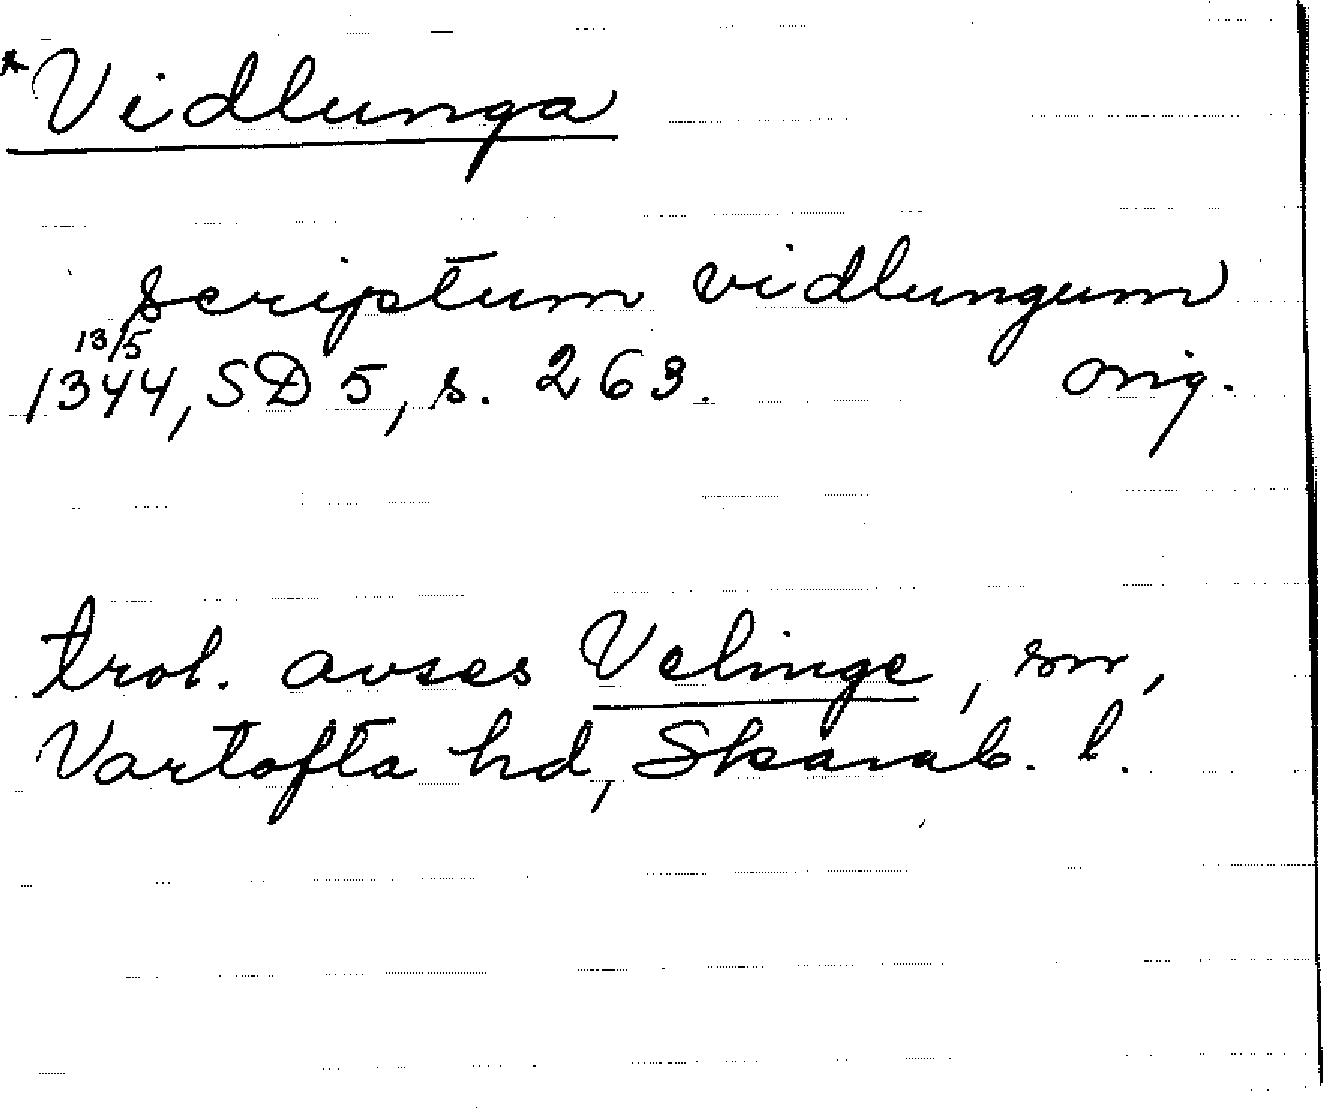 *Vidlunga
scriptum vidlungum
13/5
1344, SD 5, s. 263. orig.
trol. avses Velinge, sn,
Vartofta hd, Skarab. l.